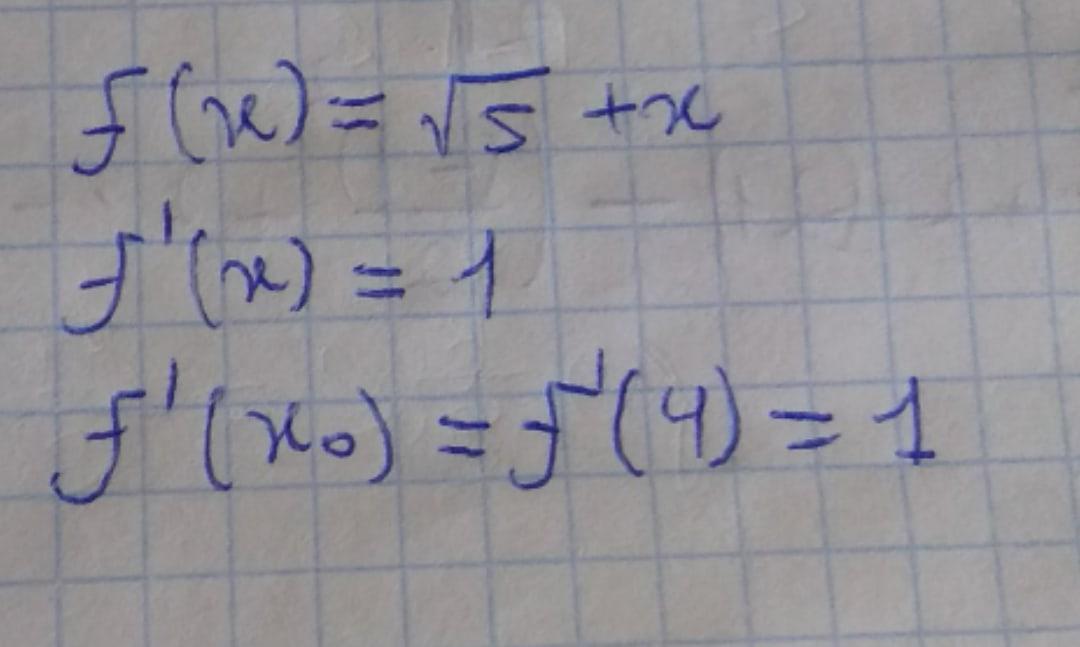 f(x) = √5 + x
f'(x) = 1
f'(x₀) = f'(4) = 1